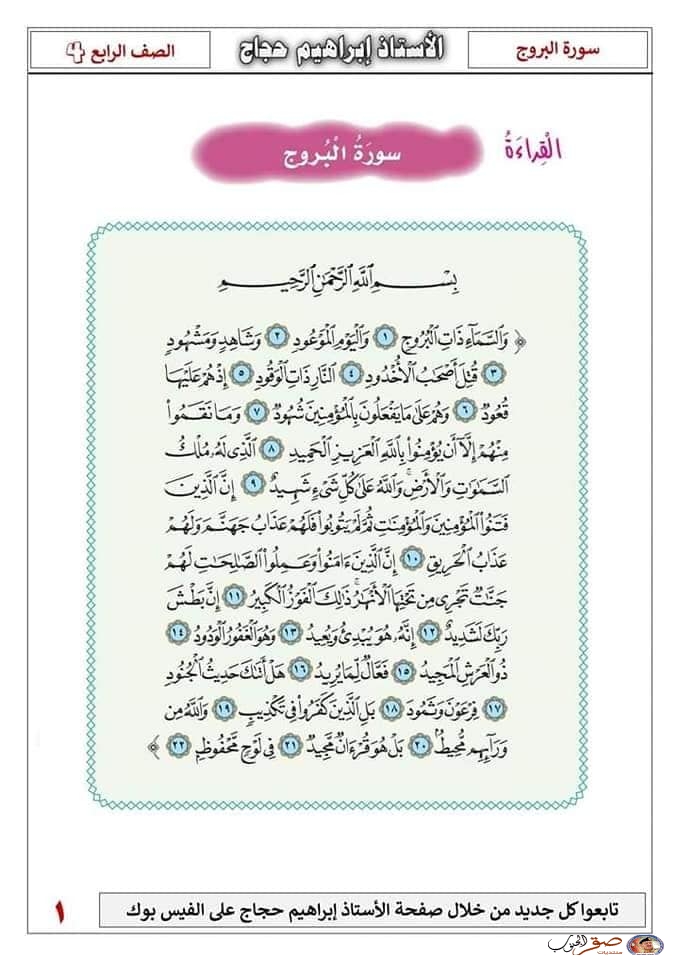 سورة البروج
الأستاذ إبراهيم حجاج
الصف الرابع 4
الْقِراءَةُ
سورَةُ الْبُروجِ
بِسْمِ اللَّهِ الرَّحْمَٰنِ الرَّحِيمِ
﴿ وَالسَّمَاءِ ذَاتِ الْبُرُوجِ ١ وَالْيَوْمِ الْمَوْعُودِ ٢ وَشَاهِدٍ وَمَشْهُودٍ
٣ قُتِلَ أَصْحَابُ الْأُخْدُودِ ٤ النَّارِ ذَاتِ الْوَقُودِ ٥ إِذْ هُمْ عَلَيْهَا
قُعُودٌ ٦ وَهُمْ عَلَىٰ مَا يَفْعَلُونَ بِالْمُؤْمِنِينَ شُهُودٌ ٧ وَمَا نَقَمُوا
مِنْهُمْ إِلَّا أَن يُؤْمِنُوا بِاللَّهِ الْعَزِيزِ الْحَمِيدِ ٨ الَّذِي لَهُ مُلْكُ
السَّمَاوَاتِ وَالْأَرْضِ ۚ وَاللَّهُ عَلَىٰ كُلِّ شَيْءٍ شَهِيدٌ ٩ إِنَّ الَّذِينَ
فَتَنُوا الْمُؤْمِنِينَ وَالْمُؤْمِنَاتِ ثُمَّ لَمْ يَتُوبُوا فَلَهُمْ عَذَابُ جَهَنَّمَ وَلَهُمْ
عَذَابُ الْحَرِيقِ ١٠ إِنَّ الَّذِينَ ءَامَنُوا وَعَمِلُوا الصَّالِحَاتِ لَهُمْ
جَنَّاتٌ تَجْرِي مِن تَحْتِهَا الْأَنْهَارُ ۚ ذَٰلِكَ الْفَوْزُ الْكَبِيرُ ١١ إِنَّ بَطْشَ
رَبِّكَ لَشَدِيدٌ ١٢ إِنَّهُ هُوَ يُبْدِئُ وَيُعِيدُ ١٣ وَهُوَ الْغَفُورُ الْوَدُودُ ١٤
ذُو الْعَرْشِ الْمَجِيدُ ١٥ فَعَّالٌ لِّمَا يُرِيدُ ١٦ هَلْ أَتَاكَ حَدِيثُ الْجُنُودِ
١٧ فِرْعَوْنَ وَثَمُودَ ١٨ بَلِ الَّذِينَ كَفَرُوا فِي تَكْذِيبٍ ١٩ وَاللَّهُ مِن
وَرَائِهِم مُّحِيطٌ ٢٠ بَلْ هُوَ قُرْءَانٌ مَّجِيدٌ ٢١ فِي لَوْحٍ مَّحْفُوظٍ ٢٢ ﴾
تابعوا كل جديد من خلال صفحة الأستاذ إبراهيم حجاج على الفيس بوك
١
صقر الجنوب
منتديات